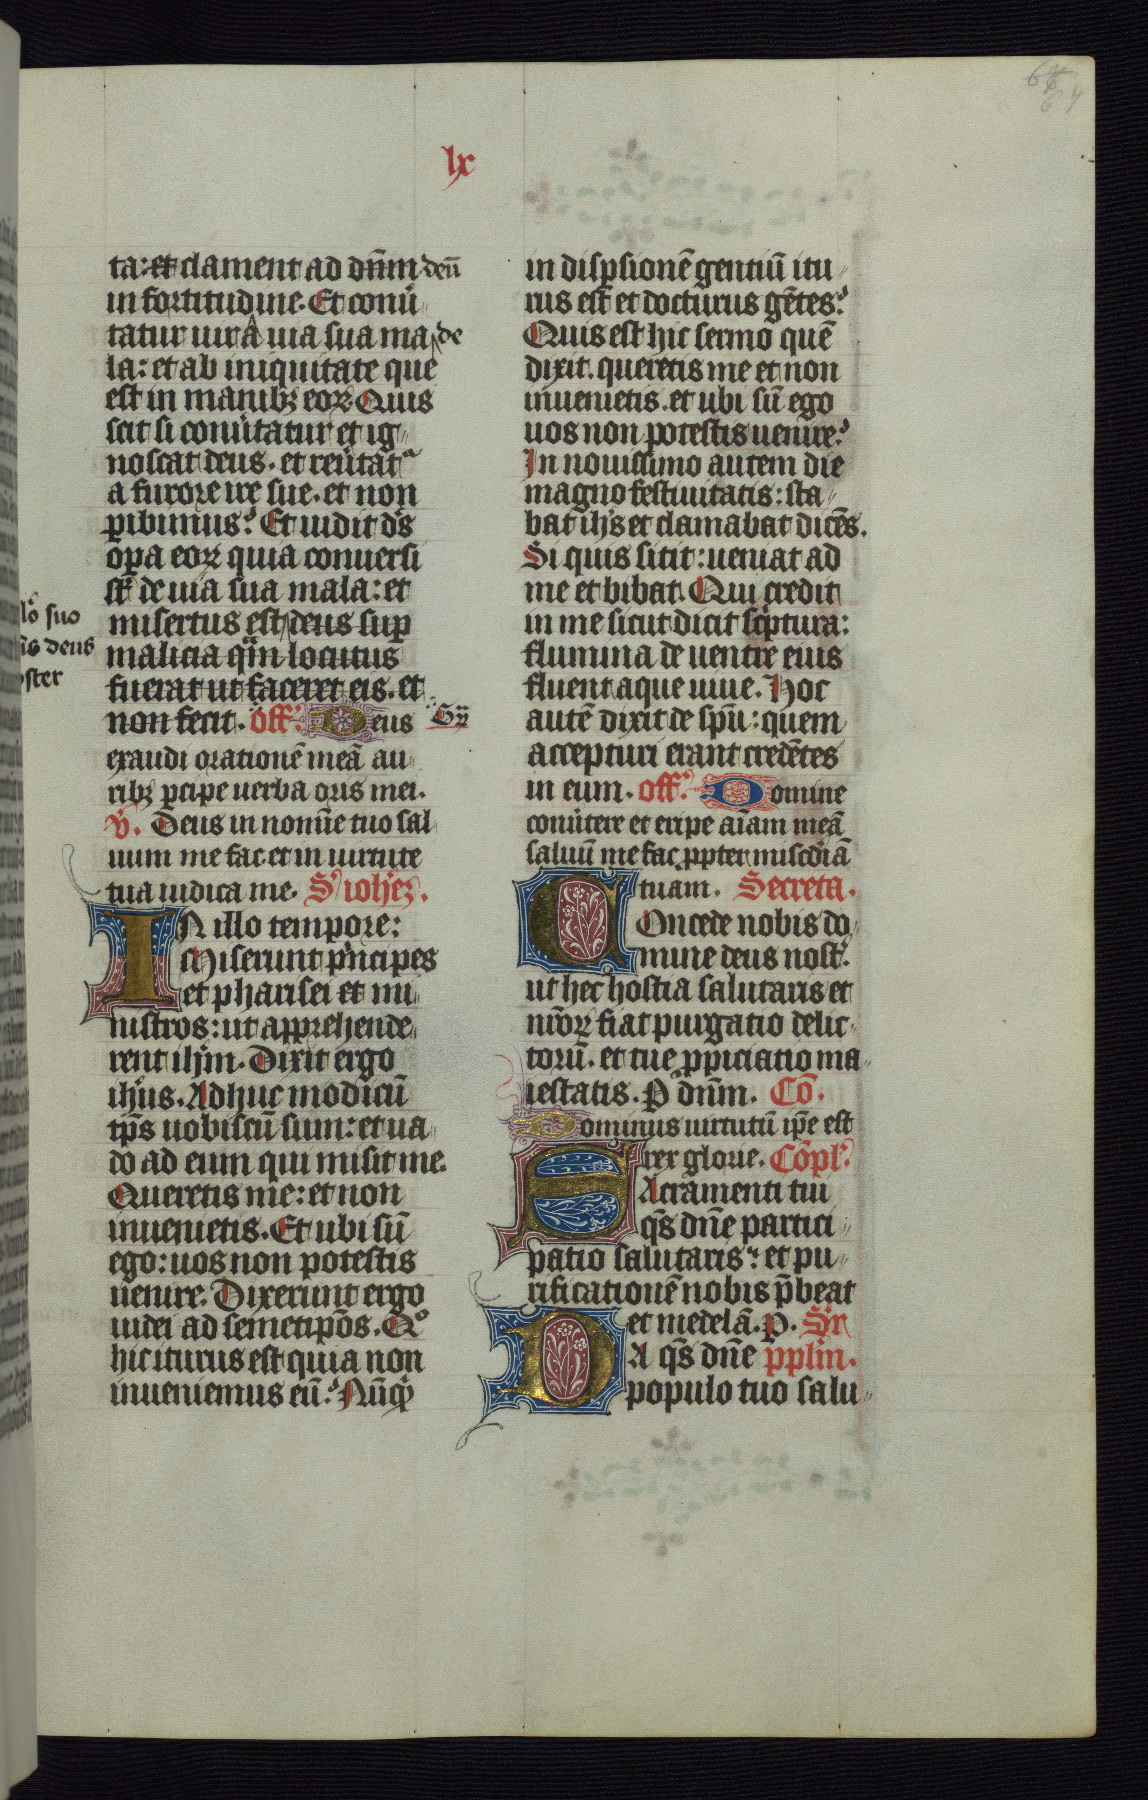 lx
ta: et clament ad dnm̄ deū
in fortitudine. Et conũ
tatur uir a uia sua ma de
la: et ab iniquitate que
est in manibꝫ eoꝝ. Quis
scit si conũtatur et ig
noscat deus. et reũtatᷣ
a furore ire sue. et non
ꝑibimus? Et uidit ds̄
oꝑa eoꝝ quia conuersi
st̄ de uia sua mala: et
misertus est deus suꝑ
malicia qͣm locutus
fuerat ut faceret eis. et
non fecit. Off̄. Deus
exaudi orationē meā au
ribꝫ ꝑcipe uerba oris mei.
V̄. Deus in nomīe tuo sal
uum me fac. et in uirtute
tua iudica me. S' ioh̄eꝫ.
In illo tempore:
Miserunt pͥncipes
et pharisei et mi
nistros: ut apprehende
rent ih̄m. Dixit ergo
ih̄us. Adhuc modicū
tp̄s uobiscū sum: et ua
do ad eum qui misit me.
Queretis me: et non
inuenietis. Et ubi sū
ego: uos non potestis
uenire. Dixerunt ergo
iudei ad semetip̄os. Qͦ
hic iturus est quia non
inueniemus eū? Nūqͥd
in disꝑsionē gentiū itu
rus est et docturus gētes?
Quis est hic sermo quē
dixit. queretis me et non
inuenietis. et ubi sū ego
uos non potestis uenire?
In nouissimo autem die
magno festiuitatis: sta
bat ih̄s et clamabat dicēs.
Si quis sitit: ueniat ad
me et bibat. Qui credit
in me sicut dicit scͥptura:
flumina de uentre eius
fluent aque uiue. Hoc
autē dixit de spū: quem
accepturi erant credētes
in eum. Off̄. Domine
conũtere et eripe aīam meā
saluū me fac ꝓpter misc̄diā
tuam. Secreta.
Concede nobis do
mine deus nost̄.
ut hec hostia salutaris et
nr̄oꝝ fiat purgatio delic
torū. et tue ꝓpiciatio ma
iestatis. P̄ dnm̄. Cō.
Dominus uirtutū ip̄e est
rex glorie. Cōpl̄.
Sacramenti tui
qs̄ dn̄e partici
patio salutaris: et pu
rificationē nobis p̄beat
et medelā. p. Sr
Da qs̄ dn̄e pplm̄.
populo tuo salu